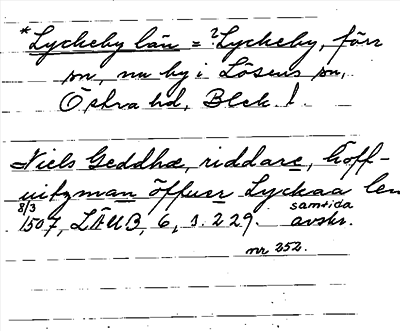 *Lyckeby län = ?Lyckeby, förr
sn, nu by i Lösens sn,
Östra hd, Blek!
Niels Geddhæ, riddare, höff-
uitzman öffuer Lyckaa len
8/3 1507, LÄUB, 6, s. 229. samtida avskr.
nr 252.